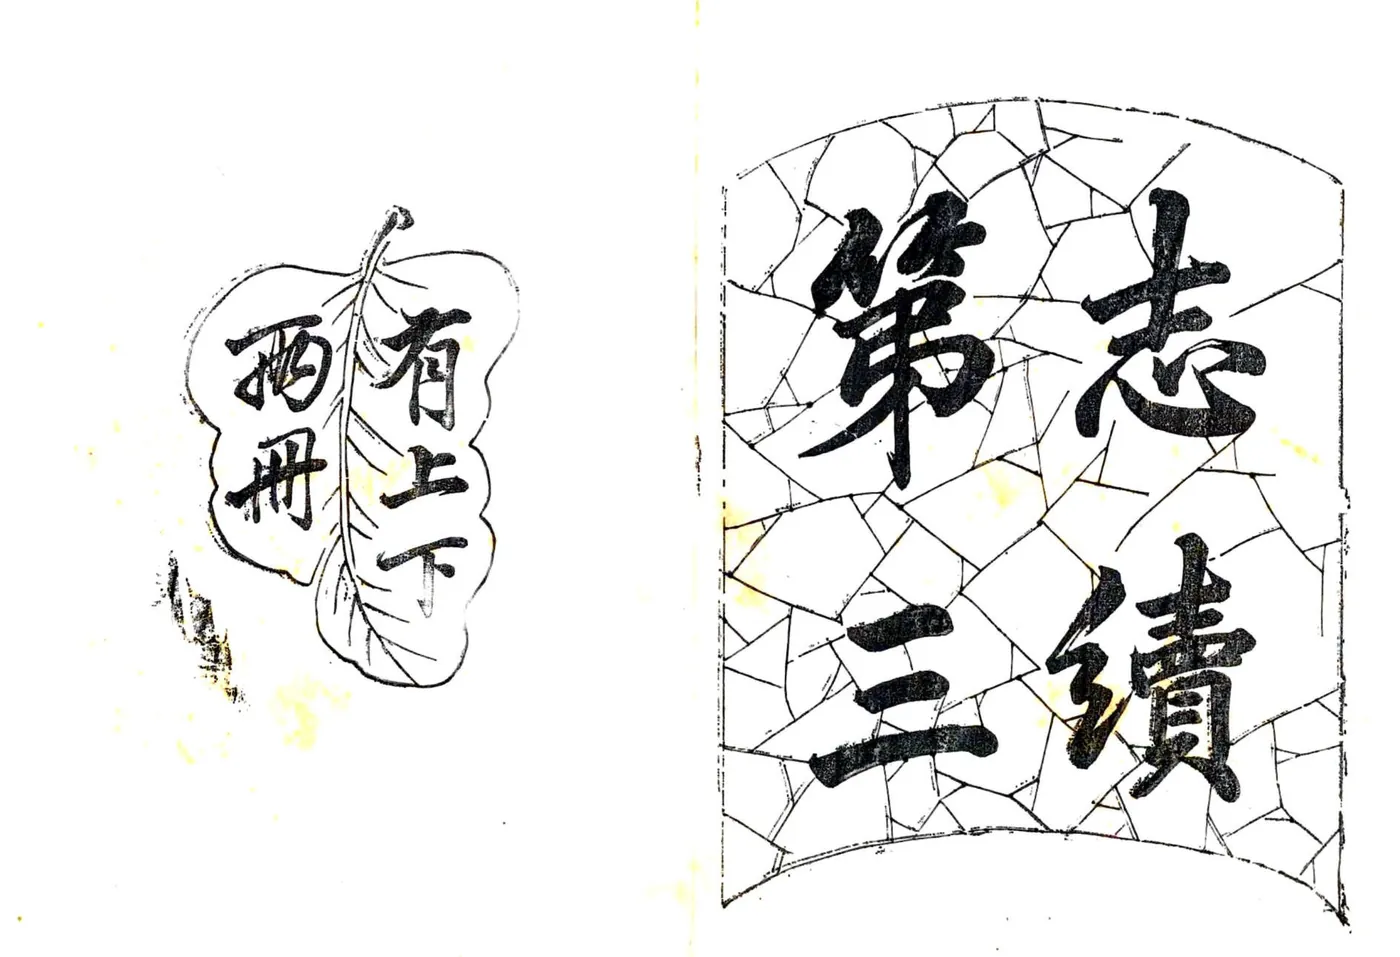 志續
第三
有上下
两冊